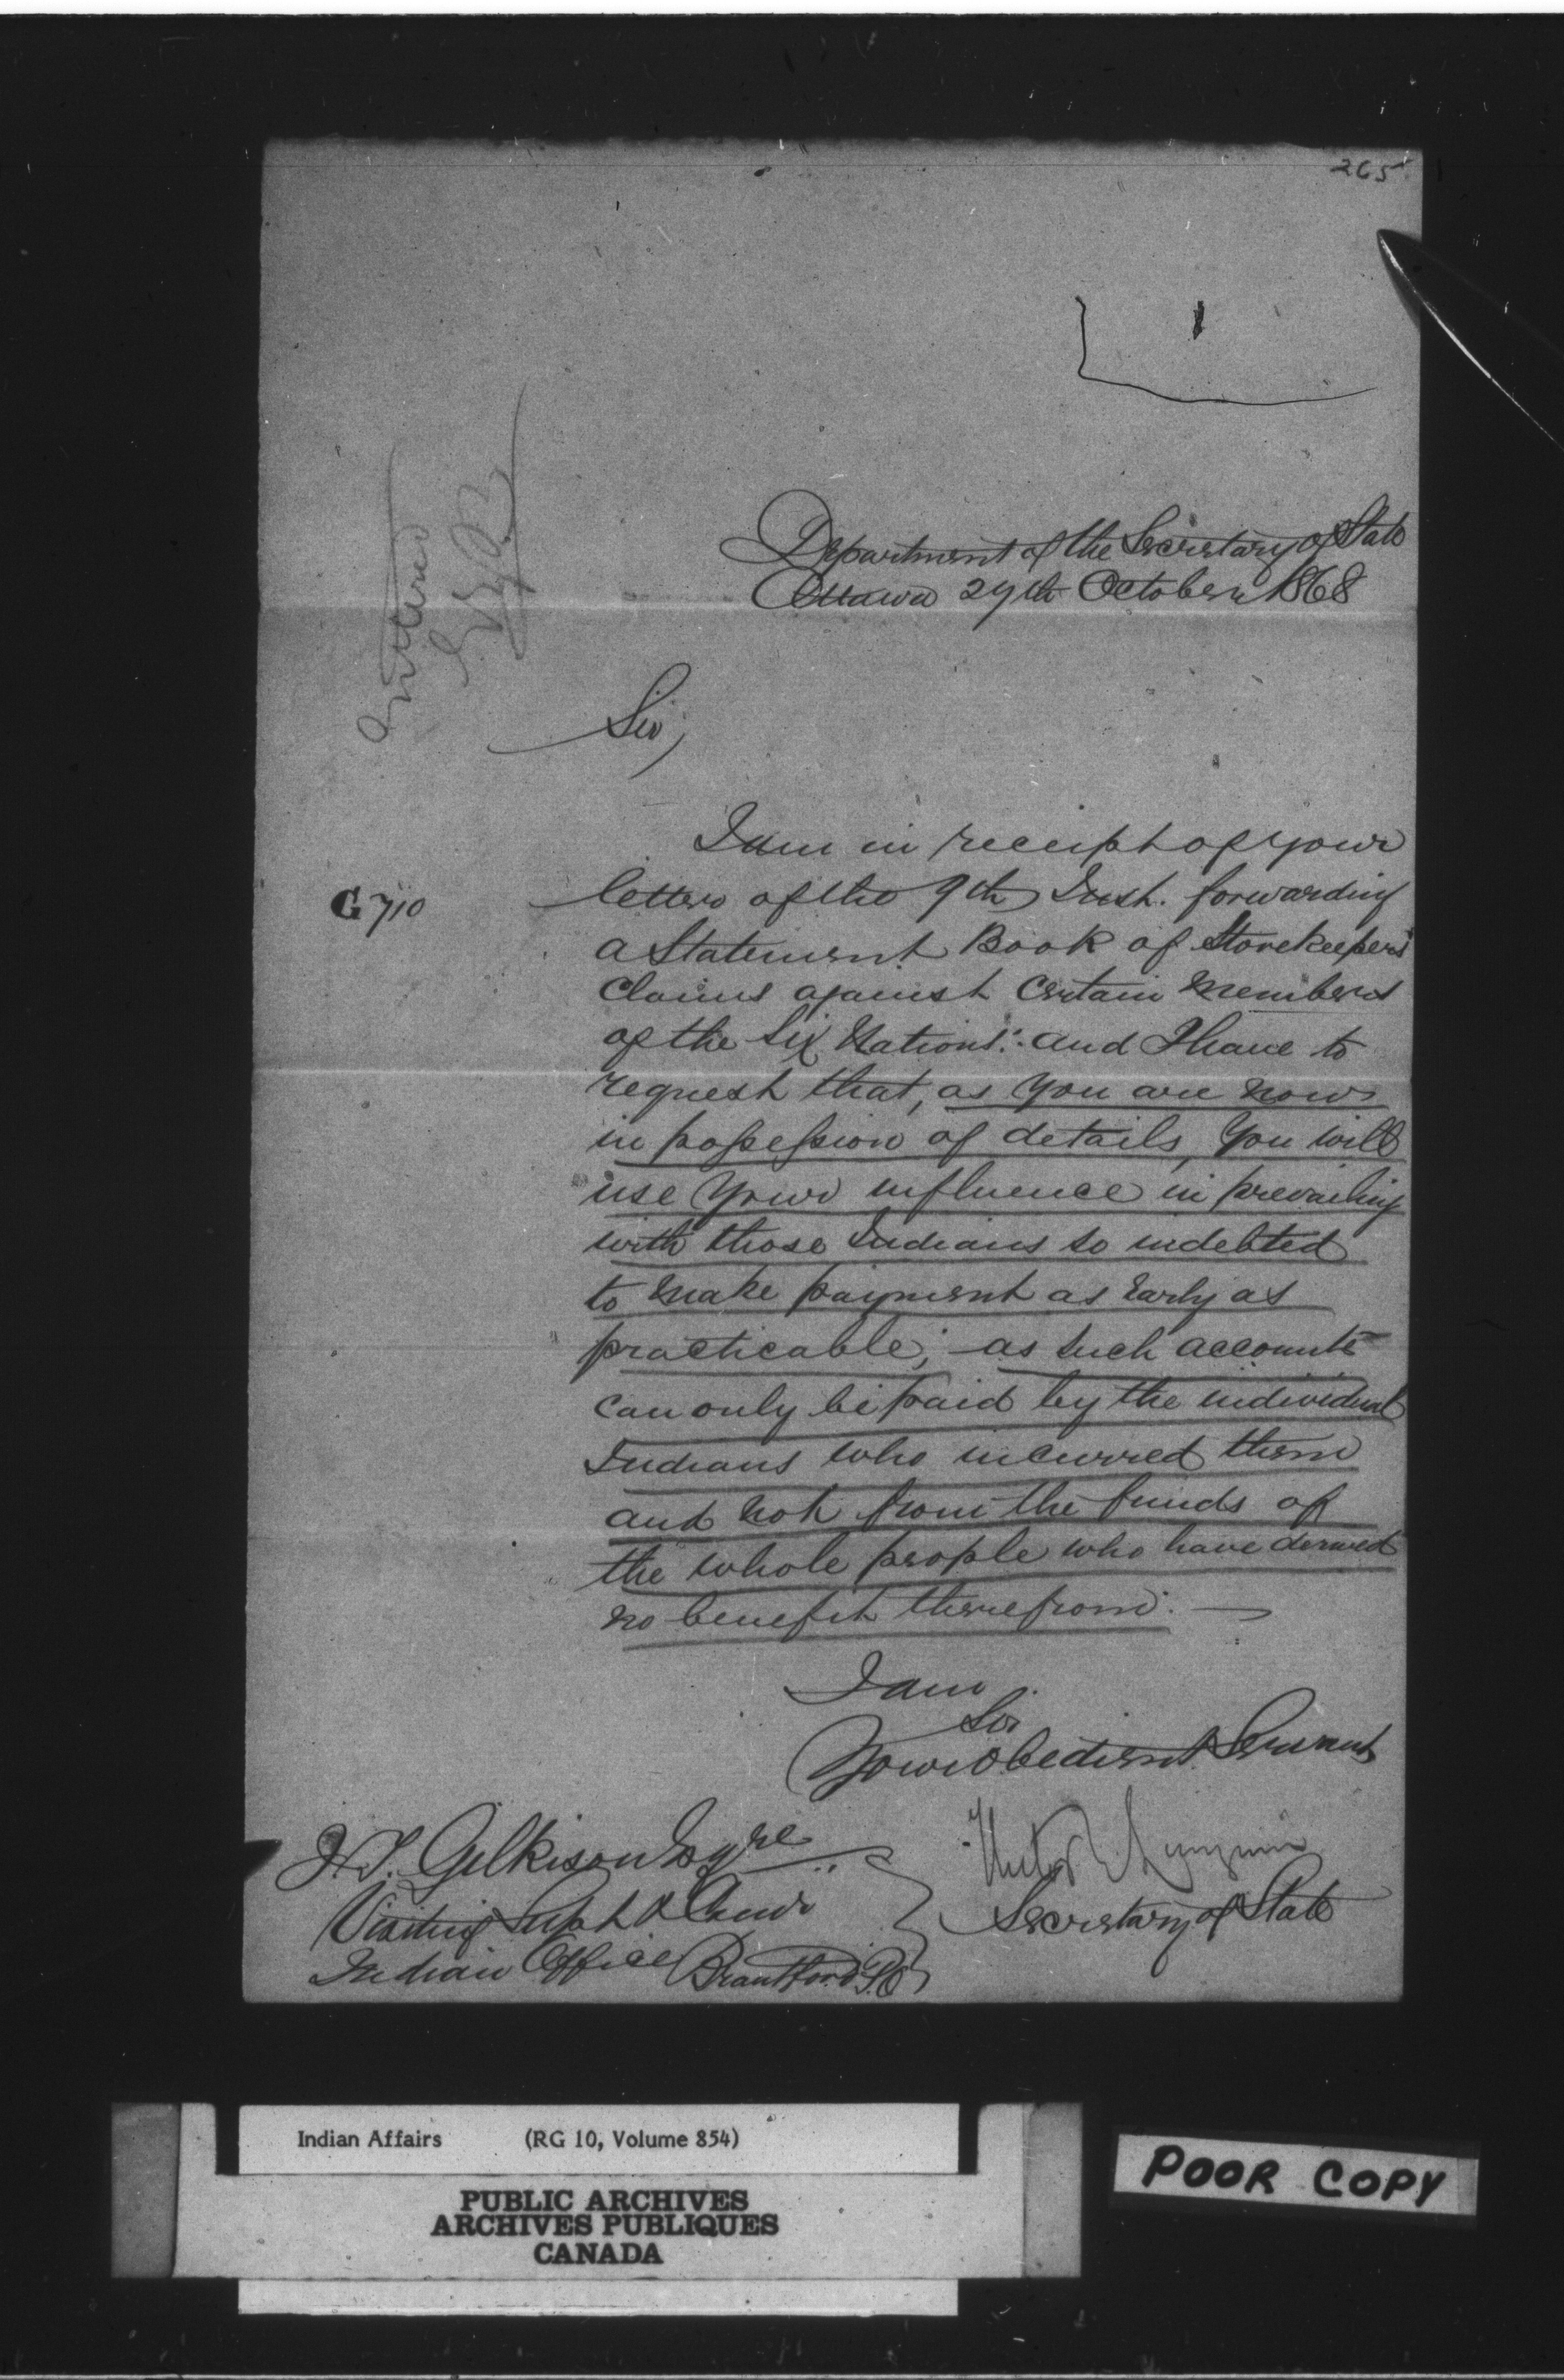 265
1
Department of the Secretary of State
Ottawa 29th October 1868
Sir,
I am in receipt of your
G 710
letter of the 9th Inst. forwarding
a Statement Book of Storekeepers'
Claims against Certain Members
of the Six Nations: and I have to
request that, as you are now
in possession of details, you will
use your influence in prevailing
with those Indians so indebted
to make payment as early as
practicable; as such accounts
can only be paid by the individual
Indians who incurred them
and not from the funds of
the whole people who have derived
no benefit therefrom.
I am
Sir
Your Obedient Servant
J.T. Gilkison Esqre
Visiting Supt &
Indian Office Brantford P.O
Secretary of State
Indian Affairs (RG 10, Volume 854)
PUBLIC ARCHIVES
ARCHIVES PUBLIQUES
CANADA
POOR COPY